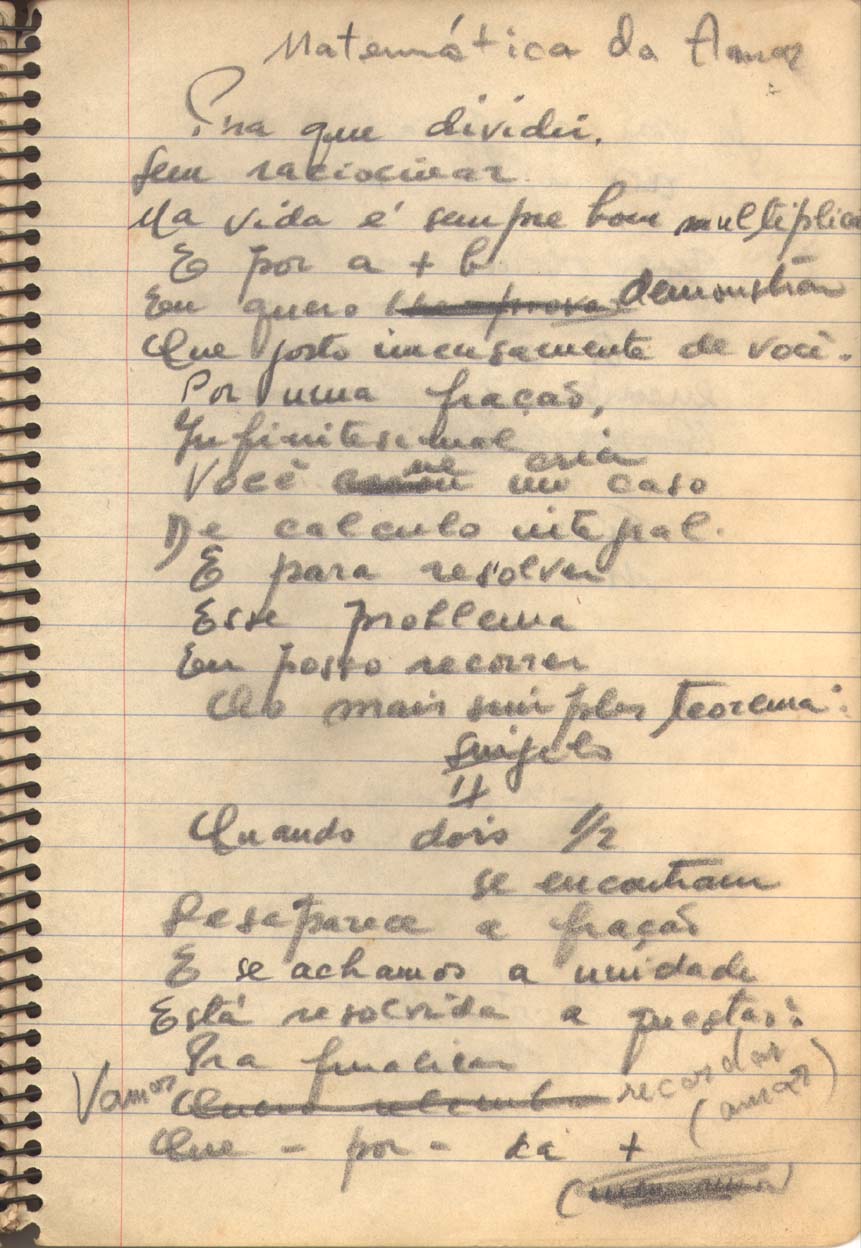 Matemática do Amor
Pra que dividir,
Sem raciocinar
Na vida é sempre bom multiplicar
E por a + b
Eu quero demonstrar
Que gosto imensamente de você.
Por uma fração,
Infinitesimal
me cria
Você um caso
De calculo integral.
E para resolver
Esse problema
Eu posso recorrer
Ao mais simples teorema:
singelo
Quando dois 1/2
se encontram
Desaparece a fração
E se achamos a unidade
Está resolvida a questão:
Pra finalizar
Vamos recordar
(amar)
Que - por - dá +